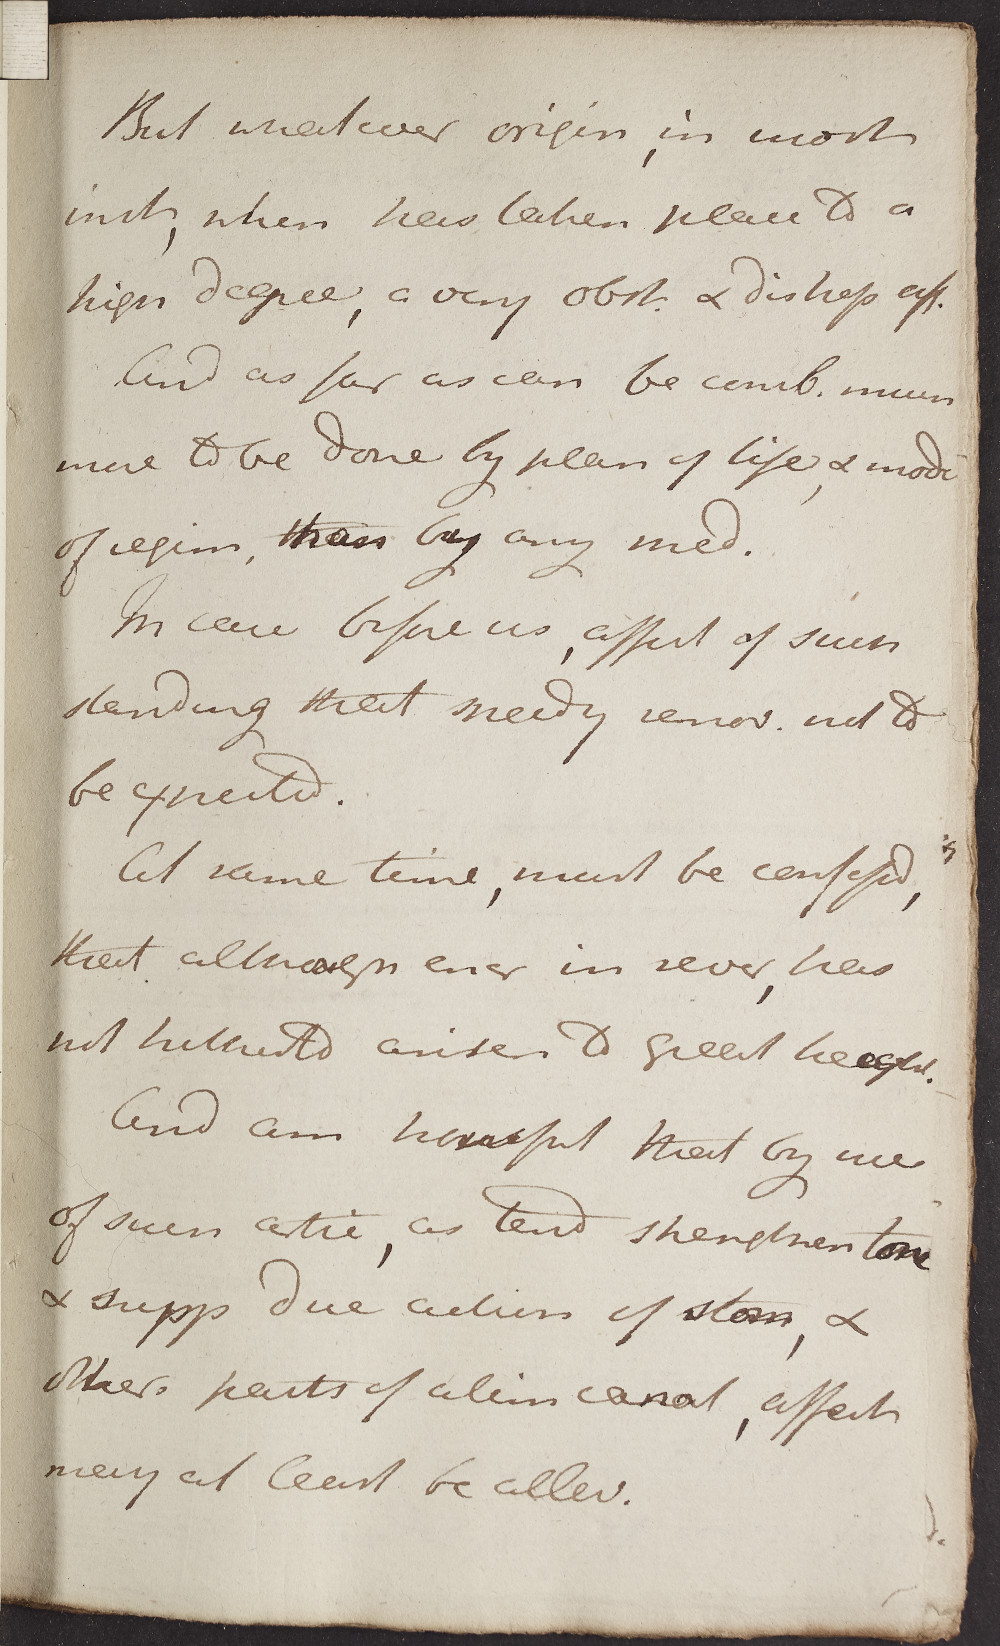 But whatever origin, in most
inst, when has taken place to a
high degree, a very obst. & distress aff.
And as far as can be comb. much
more to be done by plan of life, & mode
of regim, than by any med.
In case before us, affect of such
standing that speedy remov. not to
be expected.
At same time, must be confessd,
that although ever in sever, has
not hitherto arisen to great height.
And am hopeful that by use
of such artic, as tend strengthen tone
& supp due action of stom, &
other parts of alim canal, affect
may at least be allev.